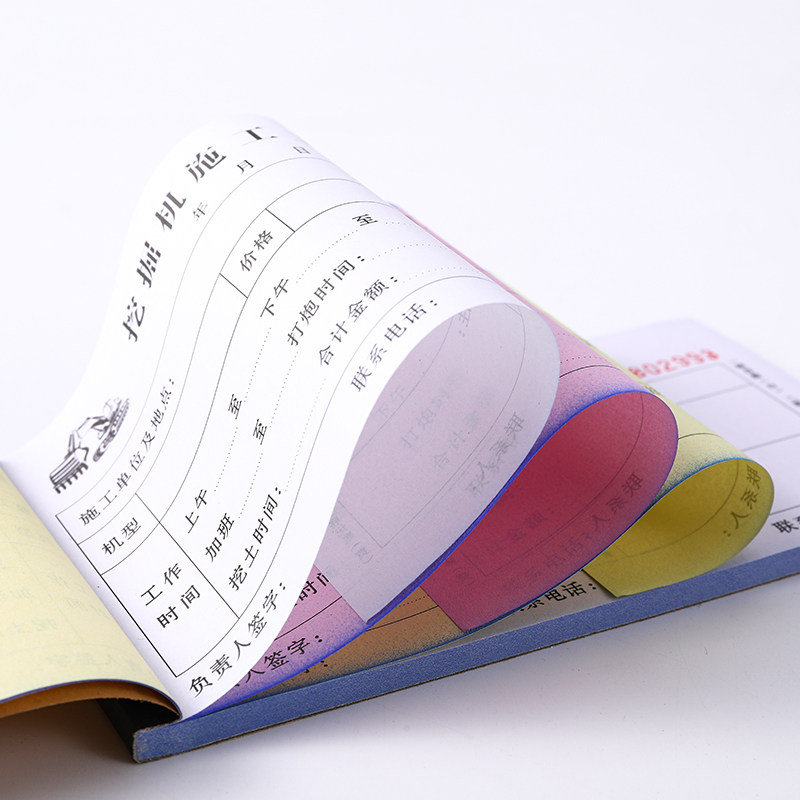 挖掘机施工
年 月 日
施工单位及地点：
机型 价格
工作时间
上午 至 下午 至
加班 至 打炮时间：
挖土时间： 合计金额：
负责人签字： 联系电话：
人签字：
系电话：
802998